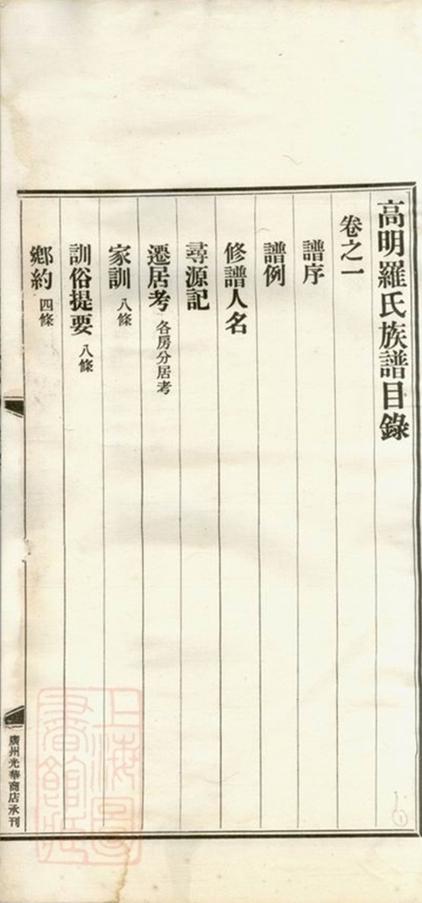 高明羅氏族譜目錄
卷之一
譜序
譜例
修譜人名
尋源記
遷居考 各房分居考
家訓 八條
訓俗提要 八條
鄉約 四條
廣州光華商店承刊